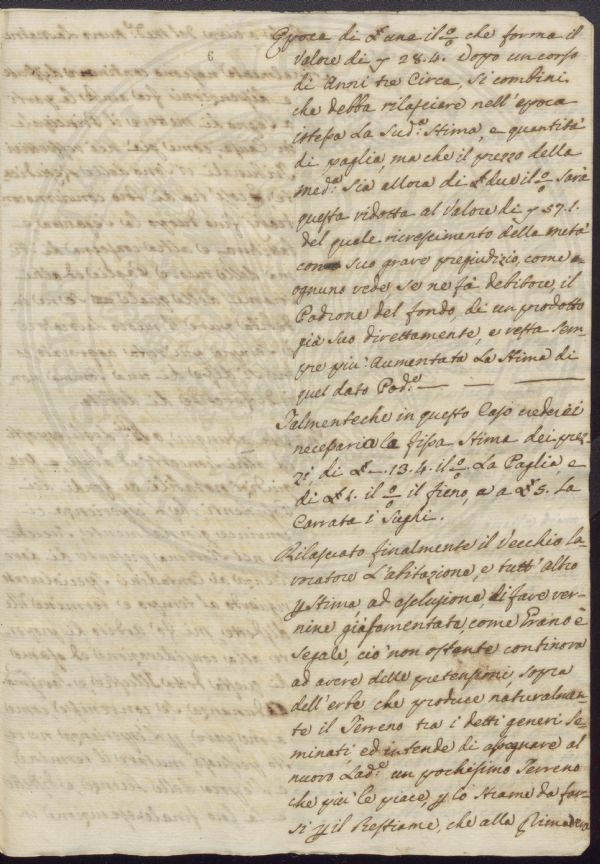 6
Epoca di £ una il % che forma il
Valore di 28.4. Dopo un corso
di Anni tre Circa, si combini
che debba rilasciare nell'epoca
istessa La Sud.ª Stima, e quantità
di paglia, ma che il prezzo della
med.ª sia allora di £ due il % Sarà
questa ridotta al Valore di 57.1.
del quale ricrescimento della metà
con suo grave pregiudizio, come
ognuno vede, se ne fà debitore, il
Padrone del fondo, di un prodotto
già suo direttamente, e resta sem-
pre più Aumentata La Stima di
quel dato Pod.e — — —
Talmenteche in questo Caso crederei
necessaria la fissa Stima dei prez-
zi, di £ —.13.4. il % La Paglia e
di £ 1. il % il fieno, e a £ 5. La
Carrata i Sughi.
Rilasciato finalmente il Vecchio la-
voratore L'abitazione, e tutt'altro
p Stima, ad esclusione, di fave ver-
nine già fomentata, come Grano e
Segale, ciò non ostante continova
ad avere delle pretensioni, sopra
dell'erbe che produce naturalmen-
te il Terreno tra i detti generi Se-
minati ed intende di assegnare al
nuovo Lad.e un pochissimo Terreno
che più le piace p lo Strame da far-
si p il Bestiame, che alla Primavera